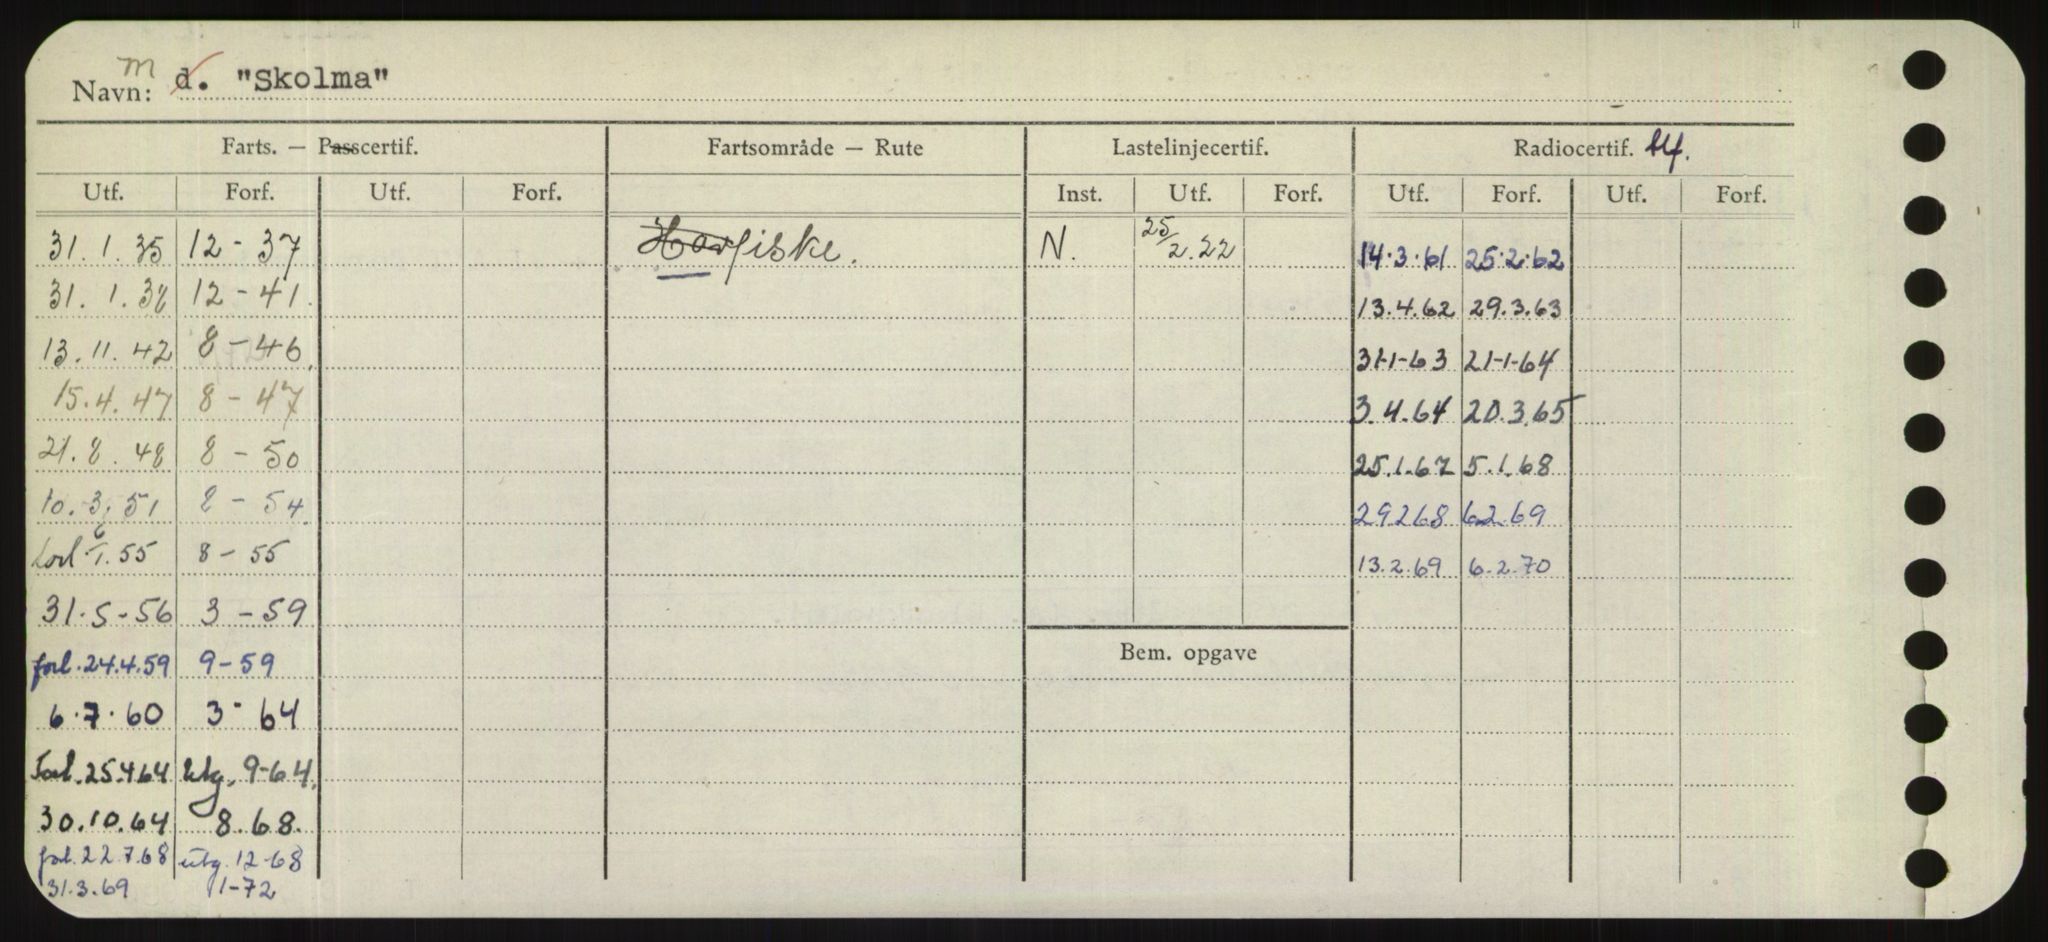 Navn: m d. "Skolma"
Farts. — Passcertif. Fartsområde — Rute Lastelinjecertif. Radiocertif. tlf.
Utf. Forf. Utf. Forf. Inst. Utf. Forf. Utf. Forf. Utf. Forf.
31. 1. 35 12 - 37 Havfiske. N. 25/2. 22 14.3.61 25.2.62
31. 1. 38 12 - 41. 13.4.62 29.3.63
13. 11. 42 8 - 46. 31-1-63 21-1-64
15. 4. 47 8 - 47 3.4.64 20.3.65
21. 8. 48 8 - 50 25.1.67 5.1.68
10. 3. 51 2 - 54. 29268 6.2.69
forl. 6/1. 55 8 - 55 13.2.69 6.2.70
31. 5 - 56 3 - 59
forl. 24.4.59 9 - 59
Bem. opgave
6. 7. 60 3 - 64
Forl. 25.4.64 utg. 9-64.
30.10.64 8.68.
forl. 22.7.68 utg. 12-68
31.3.69 1-72